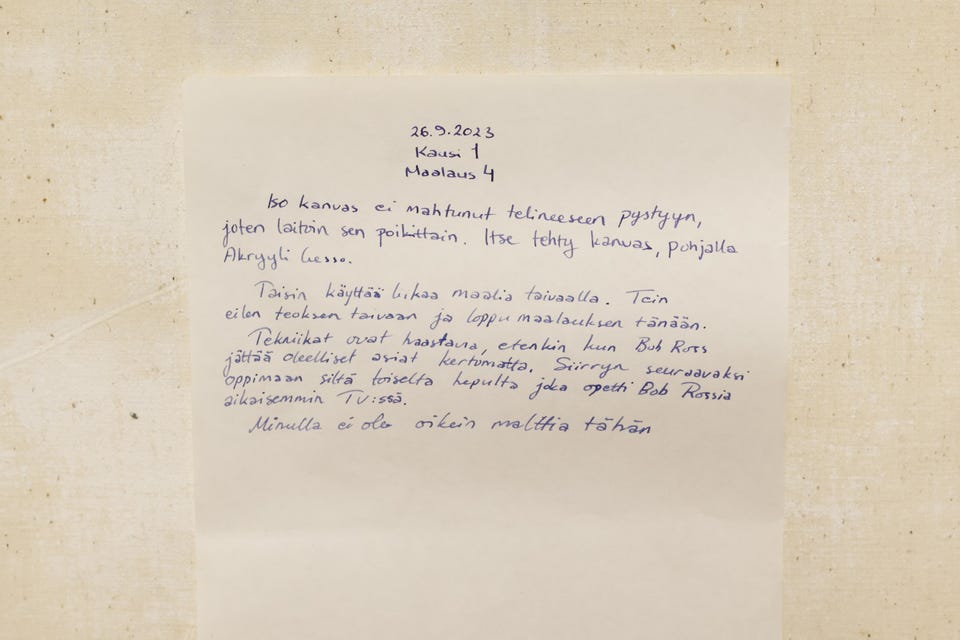 26.9.2023
Kausi 1
Maalaus 4
Iso kanvas ei mahtunut telineeseen pystyyn,
joten laitoin sen poikittain. Itse tehty kanvas, pohjalla
Akryyli Gesso.
Taisin käyttää likaa maalia taivaalla. Tein
eilen teoksen taivaan ja loppu maalauksen tänään.
Tekniikat ovat haastavia, etenkin kun Bob Ross
jättää oleelliset asiat kertomatta. Siirryn seuraavaksi
oppimaan siltä toiselta hepulta joka opetti Bob Rossia
aikaisemmin TV:ssä.
Minulla ei ole oikein malttia tähän